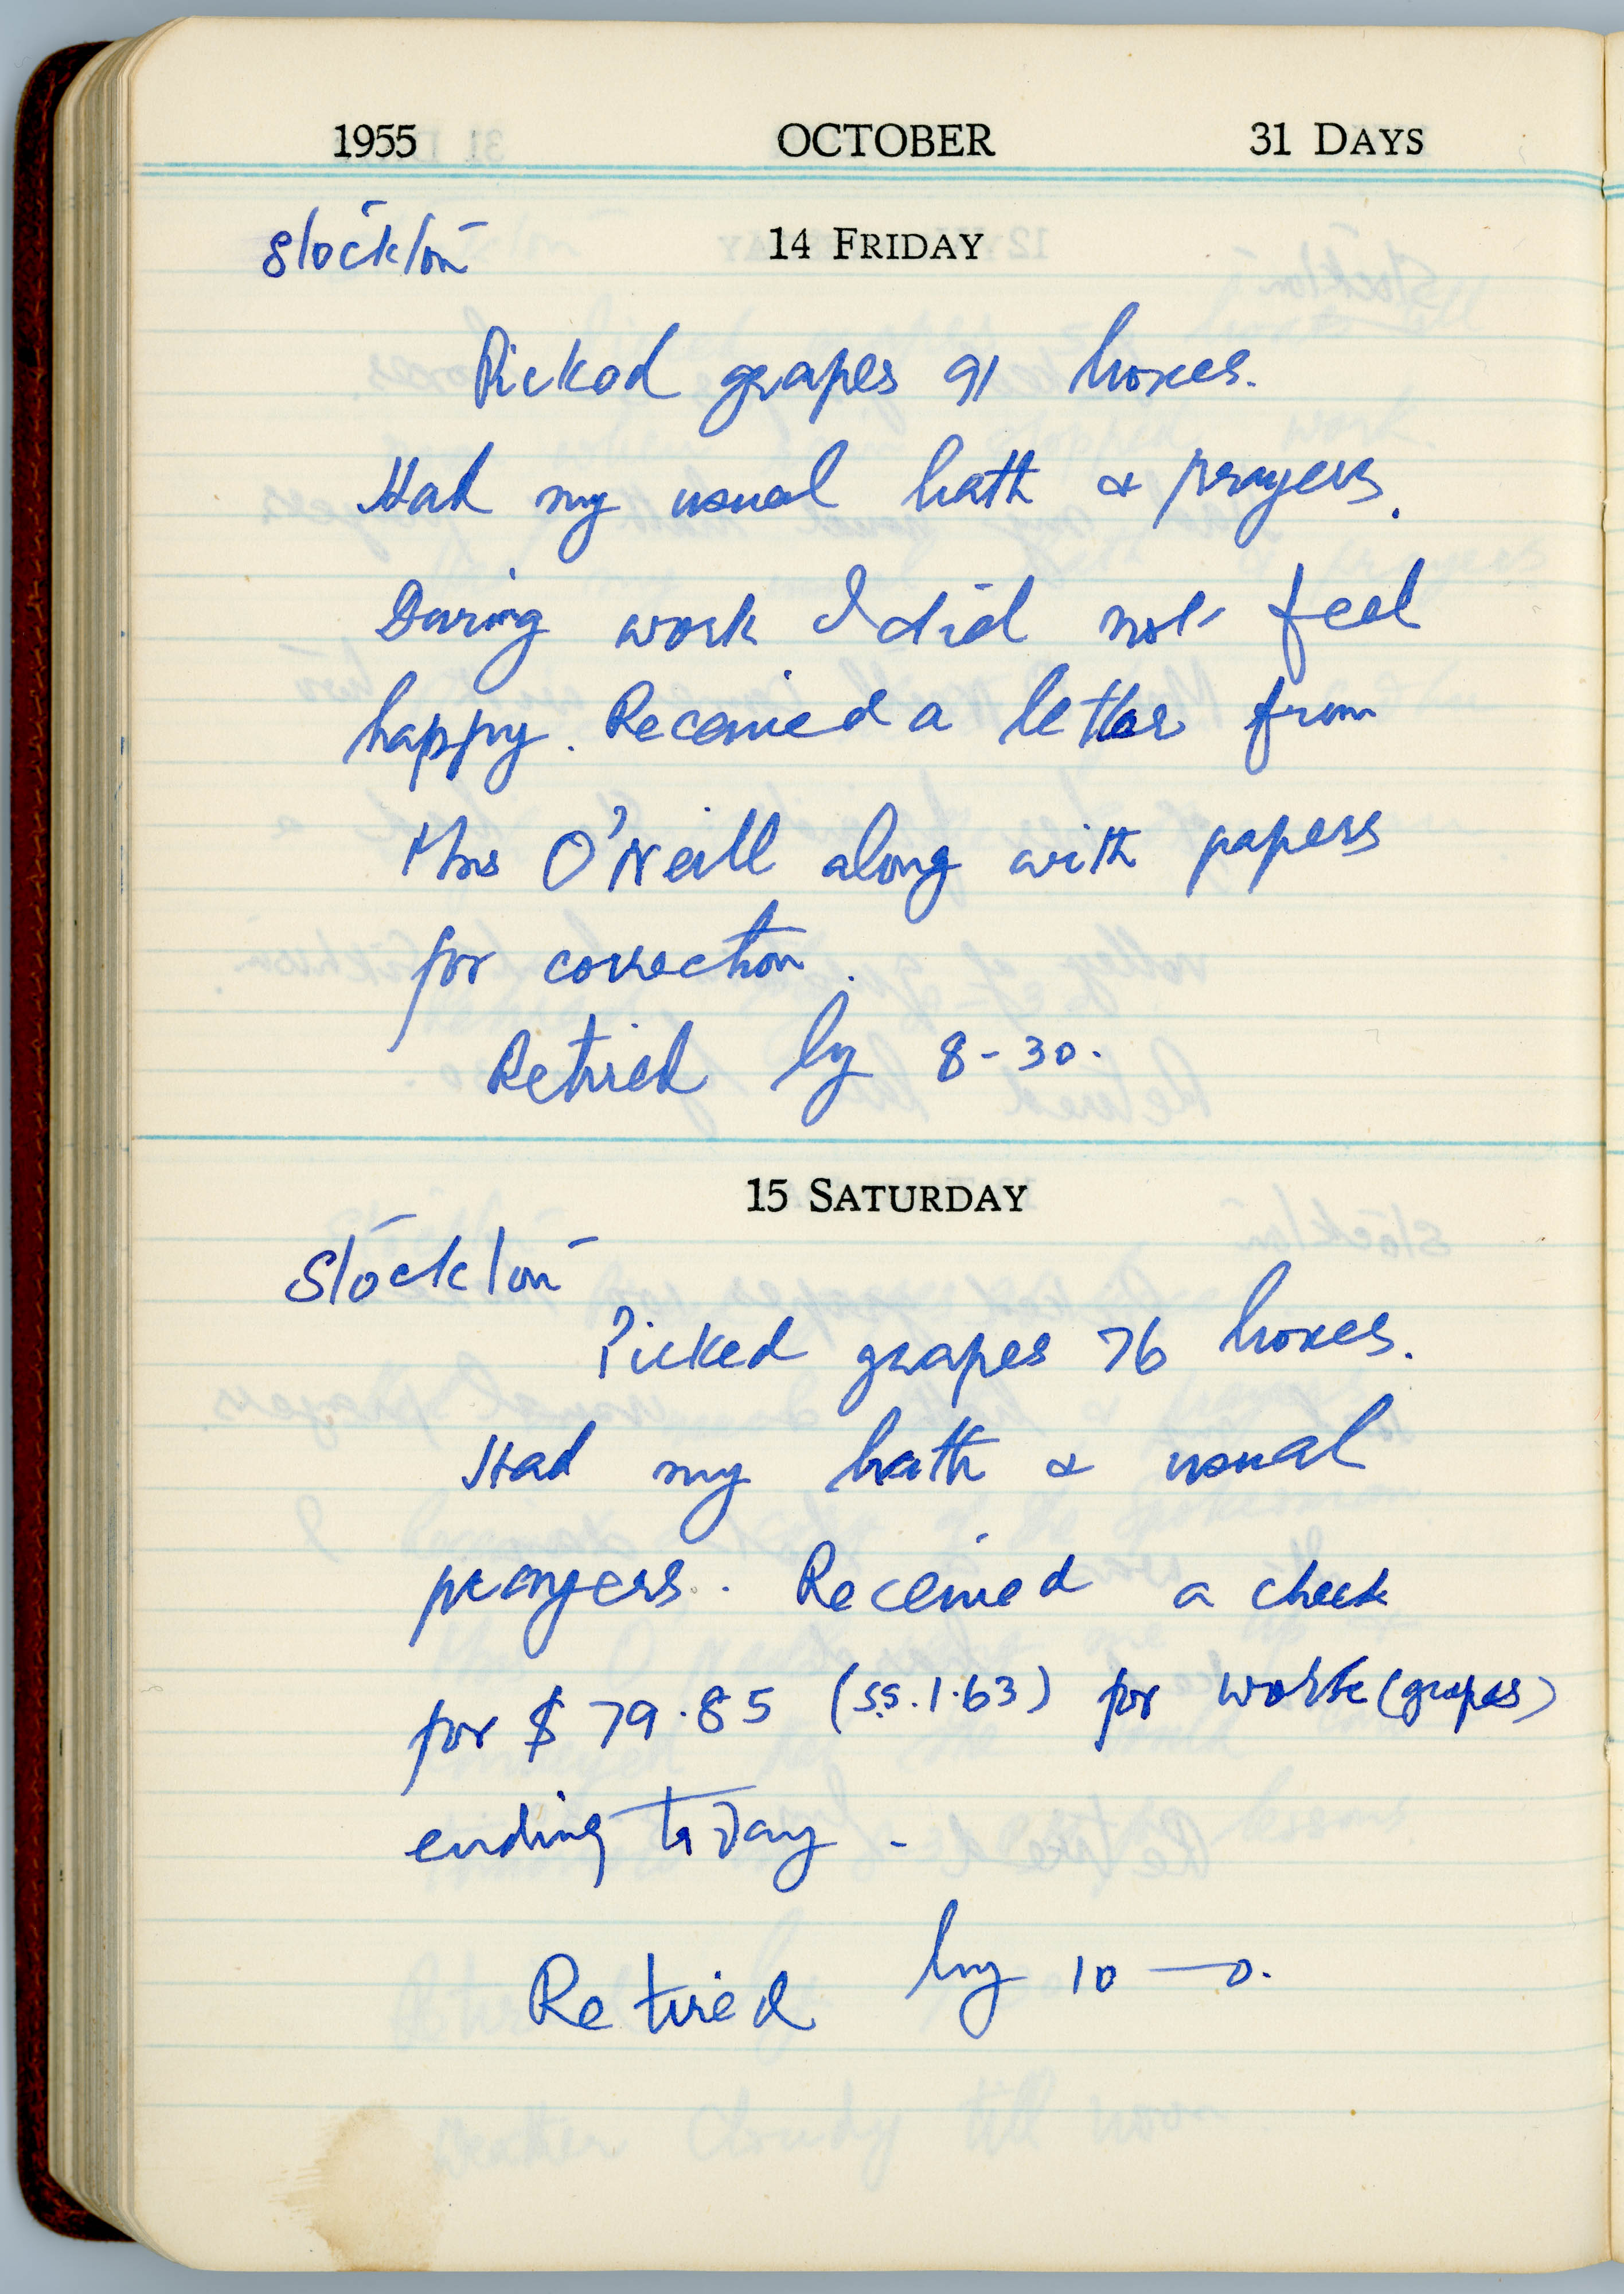 1955 OCTOBER 31 DAYS
Stockton 14 FRIDAY
Picked grapes 91 boxes.
Had my usual bath & prayers.
During work I did not feel
happy. Received a letter from
Mrs O'Neill along with papers
for correction.
Retired by 8-30.
15 SATURDAY
Stockton
Picked grapes 76 boxes.
Had my bath & usual
prayers. Received a check
for $79.85 (s.s. 1.63) for work (grapes)
ending today -
Retired by 10-0.